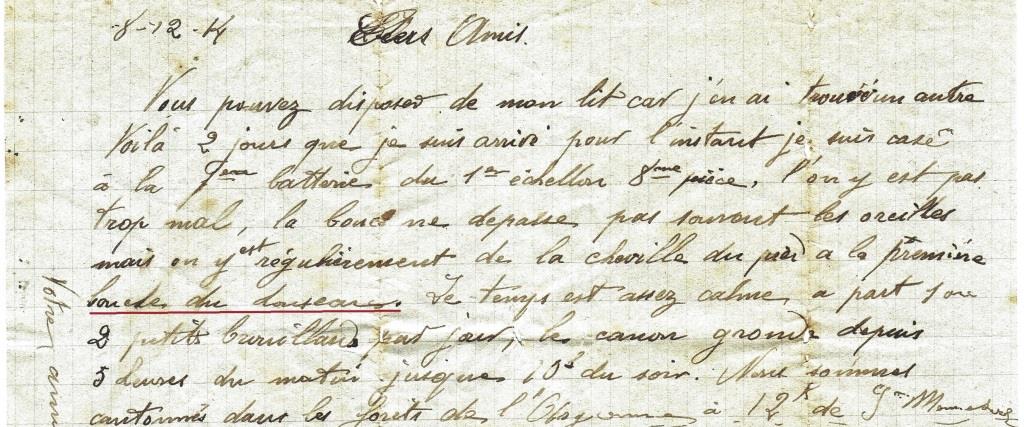 8-12-14 Chers Amis.
Vous pouvez disposer de mon lit car j'en ai trouvé un autre
Voilà 2 jours que je suis arrivé pour l'instant je suis casé
à la batterie du 1er échellon 8eme pièce, l'on y est pas
trop mal, la boue ne depasse pas souvent les oreilles
mais on y est régulièrement de la cheville du pied a la première
boucle du Le temps est assez calme, a part 1 ou
2 petits brouillards par jour, le canon gronde depuis
5 heures du matin jusque 10h du soir. Nous sommes
cantonnés dans les forêts de l'Argonne à 12k de Ste
Votre ami